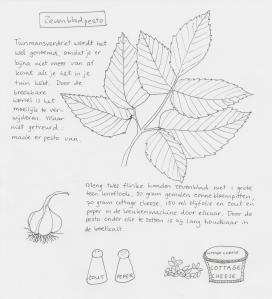 Zevenbladpesto
Tuinmansverdriet wordt het
wel genoemd, omdat je er
bijna niet meer van af
komt als je het in je
tuin hebt. Door de
breekbare
wortel is het
moeilijk te ver-
wijderen. Maar
niet getreurd
maak er pesto van.
Meng twee flinke handen zevenblad met 1 grote
teen knoflook, 30 gram gemalen zonnebloempitten,
70 gram cottage cheese, 150 ml olijfolie en zout en
peper in de keukenmachine door elkaar. Door de
pesto onder olie te zetten is hij lang houdbaar in
de koelkast.
ZOUT
PEPER
COTTAGE CHEESE
COTTAGE
CHEESE